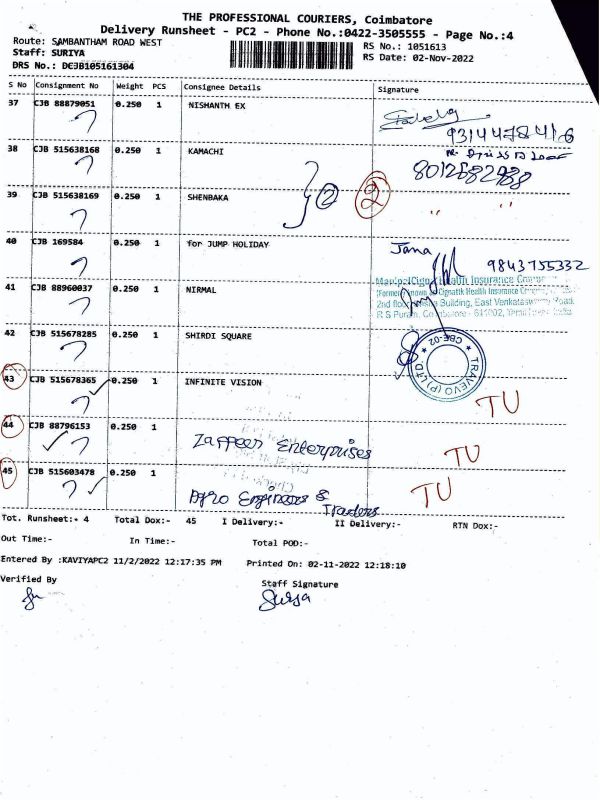 THE PROFESSIONAL COURIERS, Coimbatore
Delivery Runsheet - PC2 - Phone No.:0422-3505555 - Page No.:4
Route: SAMBANTHAM ROAD WEST
RS No.: 1051613
Staff: SURIYA
RS Date: 02-Nov-2022
DRS No.: DCJB105161304
S No Consignment No Weight PCS Consignee Details Signature
37 CJB 88879051 0.250 1 NISHANTH EX
9314478416
38 CJB 515638168 0.250 1 KAMACHI
8012682988
39 CJB 515638169 0.250 1 SHENBAKA
2 2 " "
40 CJB 169584 0.250 1 for JUMP HOLIDAY Jana
9843755332
41 CJB 88960037 0.250 1 NIRMAL
Health Insurance
Health Insurance
2nd Building, East Venkataswamy Road,
R S Puram, Coimbatore - 641002,
42 CJB 515678285 0.250 1 SHIRDI SQUARE
TRAVEVO (P) LTD. CBE-02
43 CJB 515678365 0.250 1 INFINITE VISION
TU
44 CJB 88796153 0.250 1 Zaffeer Enterprises TU
45 CJB 515603478 0.250 1 Agro Engineers & Traders TU
Tot. Runsheet:- 4 Total Dox:- 45 I Delivery:- II Delivery:- RTN Dox:-
Out Time:- In Time:- Total POD:-
Entered By :KAVIYAPC2 11/2/2022 12:17:35 PM Printed On: 02-11-2022 12:18:10
Verified By Staff Signature
Surya